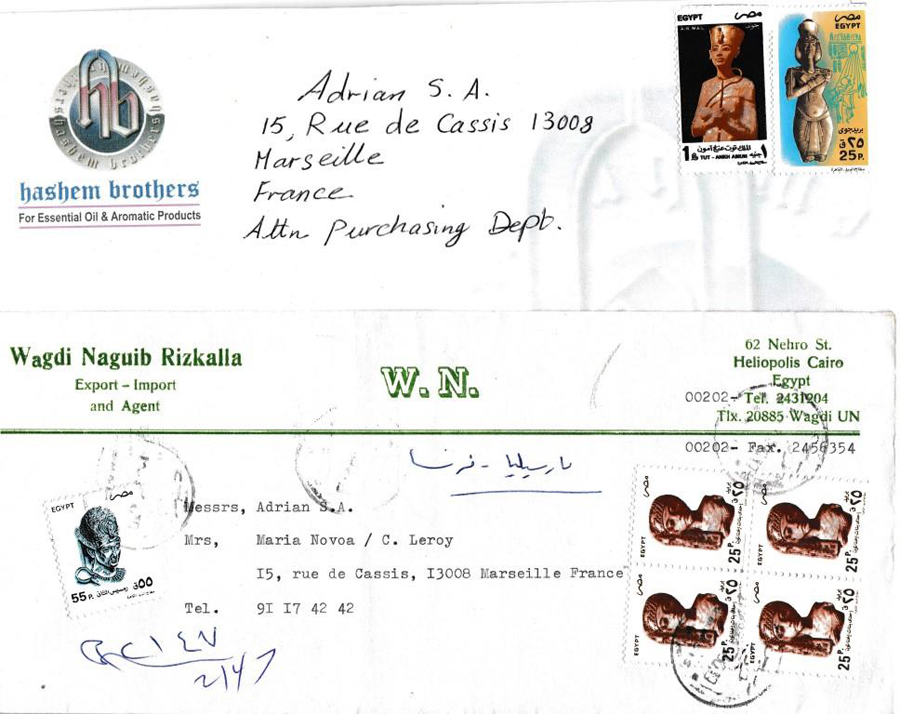 EGYPT مصر
AIR MAIL
الملك توت عنخ آمون
1£ جنيه ١
TUT - ANKH AMUN
مصر
EGYPT
بريد جوى
٢٥ ق
25 P.
hb
hashem brothers
hashem brothers
For Essential Oil & Aromatic Products
Adrian S. A.
15, Rue de Cassis 13008
Marseille
France
Attn Purchasing Dept.
Wagdi Naguib Rizkalla
Export - Import
and Agent
W. N.
62 Nehro St.
Heliopolis Cairo
Egypt
00202- Tel. 2431204
Tlx. 20885 Wagdi UN
00202- Fax. 2456354
مارسيليا - فرنسا
EGYPT مصر
55 P. رمسيس الثانى ٥٥ ق
Messrs, Adrian S.A.
Mrs, Maria Novoa / C. Leroy
I5, rue de Cassis, I3008 Marseille France
Tel. 9I I7 42 42
EGYPT مصر بريد ٢٥ ق 25 P.
EGYPT مصر بريد ٢٥ ق 25 P.
EGYPT مصر بريد ٢٥ ق 25 P.
EGYPT مصر بريد ٢٥ ق 25 P.